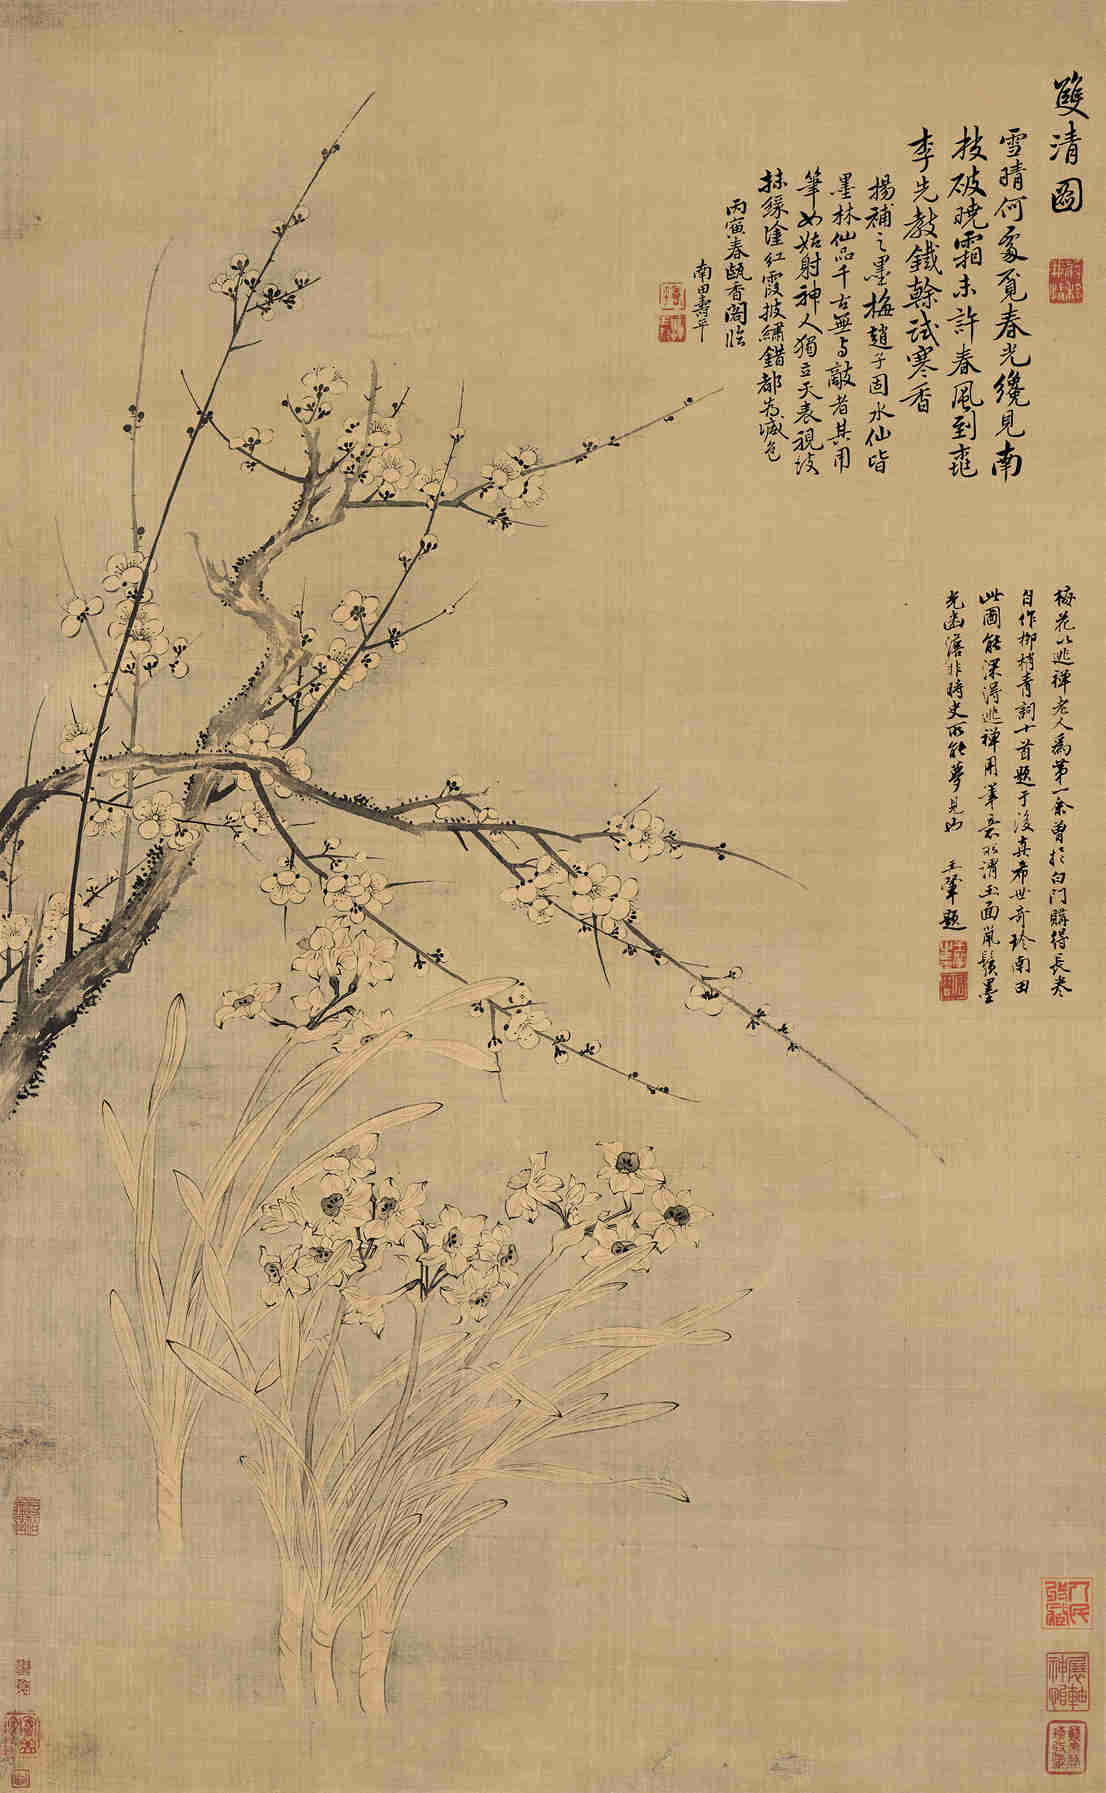 雙清圖
雪晴何處覓春光纔見南
技破曉霜未許春風到桃
李先教鐵榦試寒香
揚補之墨梅趙子固水仙皆
墨林仙品千古無與敵者其用
筆如姑射神人獨立天表視
抹綠塗紅霞披繡錯都為減色
丙寅春甌香閣臨
南田壽平
梅花以逃禪老人為第一余曾於白門購得長卷
自作柳梢青詞十首題于後真希世奇珍南田
此圖能深得逃禪用筆意水消玉面鼠鬚墨
光幽澹非時史所能夢見也 王翬題